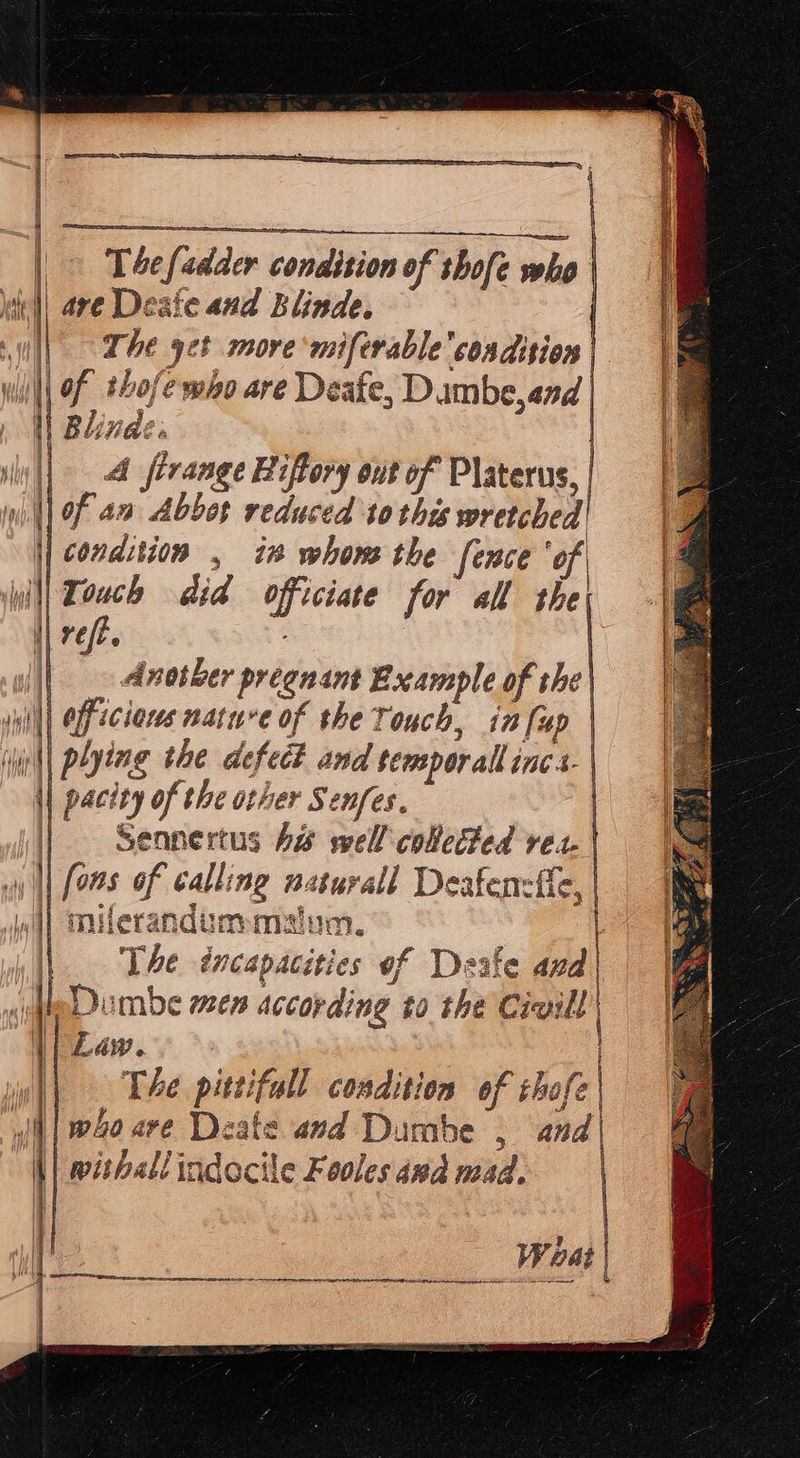 The ſadder condition of thoſe who
are Deafe and Blinde.
The yet more miſerable condition
of thoſe who are Deafe, Dumbe, and
Blinde.
A ſtrange Hiſtory out of Platerus,
of an Abbot reduced to this wretched
condition , in whom the ſence of
Touch did officiate for all the
reſt.
Another pregnant Example of the
officious nature of the Touch, in ſup
plying the defect and temporall inca-
pacity of the other Senſes.
Sennertus his well collected rea-
ſons of calling naturall Deafeneſſe,
miſerandum malum.
The incapacities of Deafe and
Dumbe men according to the Civill
Law.
The pittifull condition of thoſe
who are Deafe and Dumbe , and
withall indocile Fooles and mad.
What